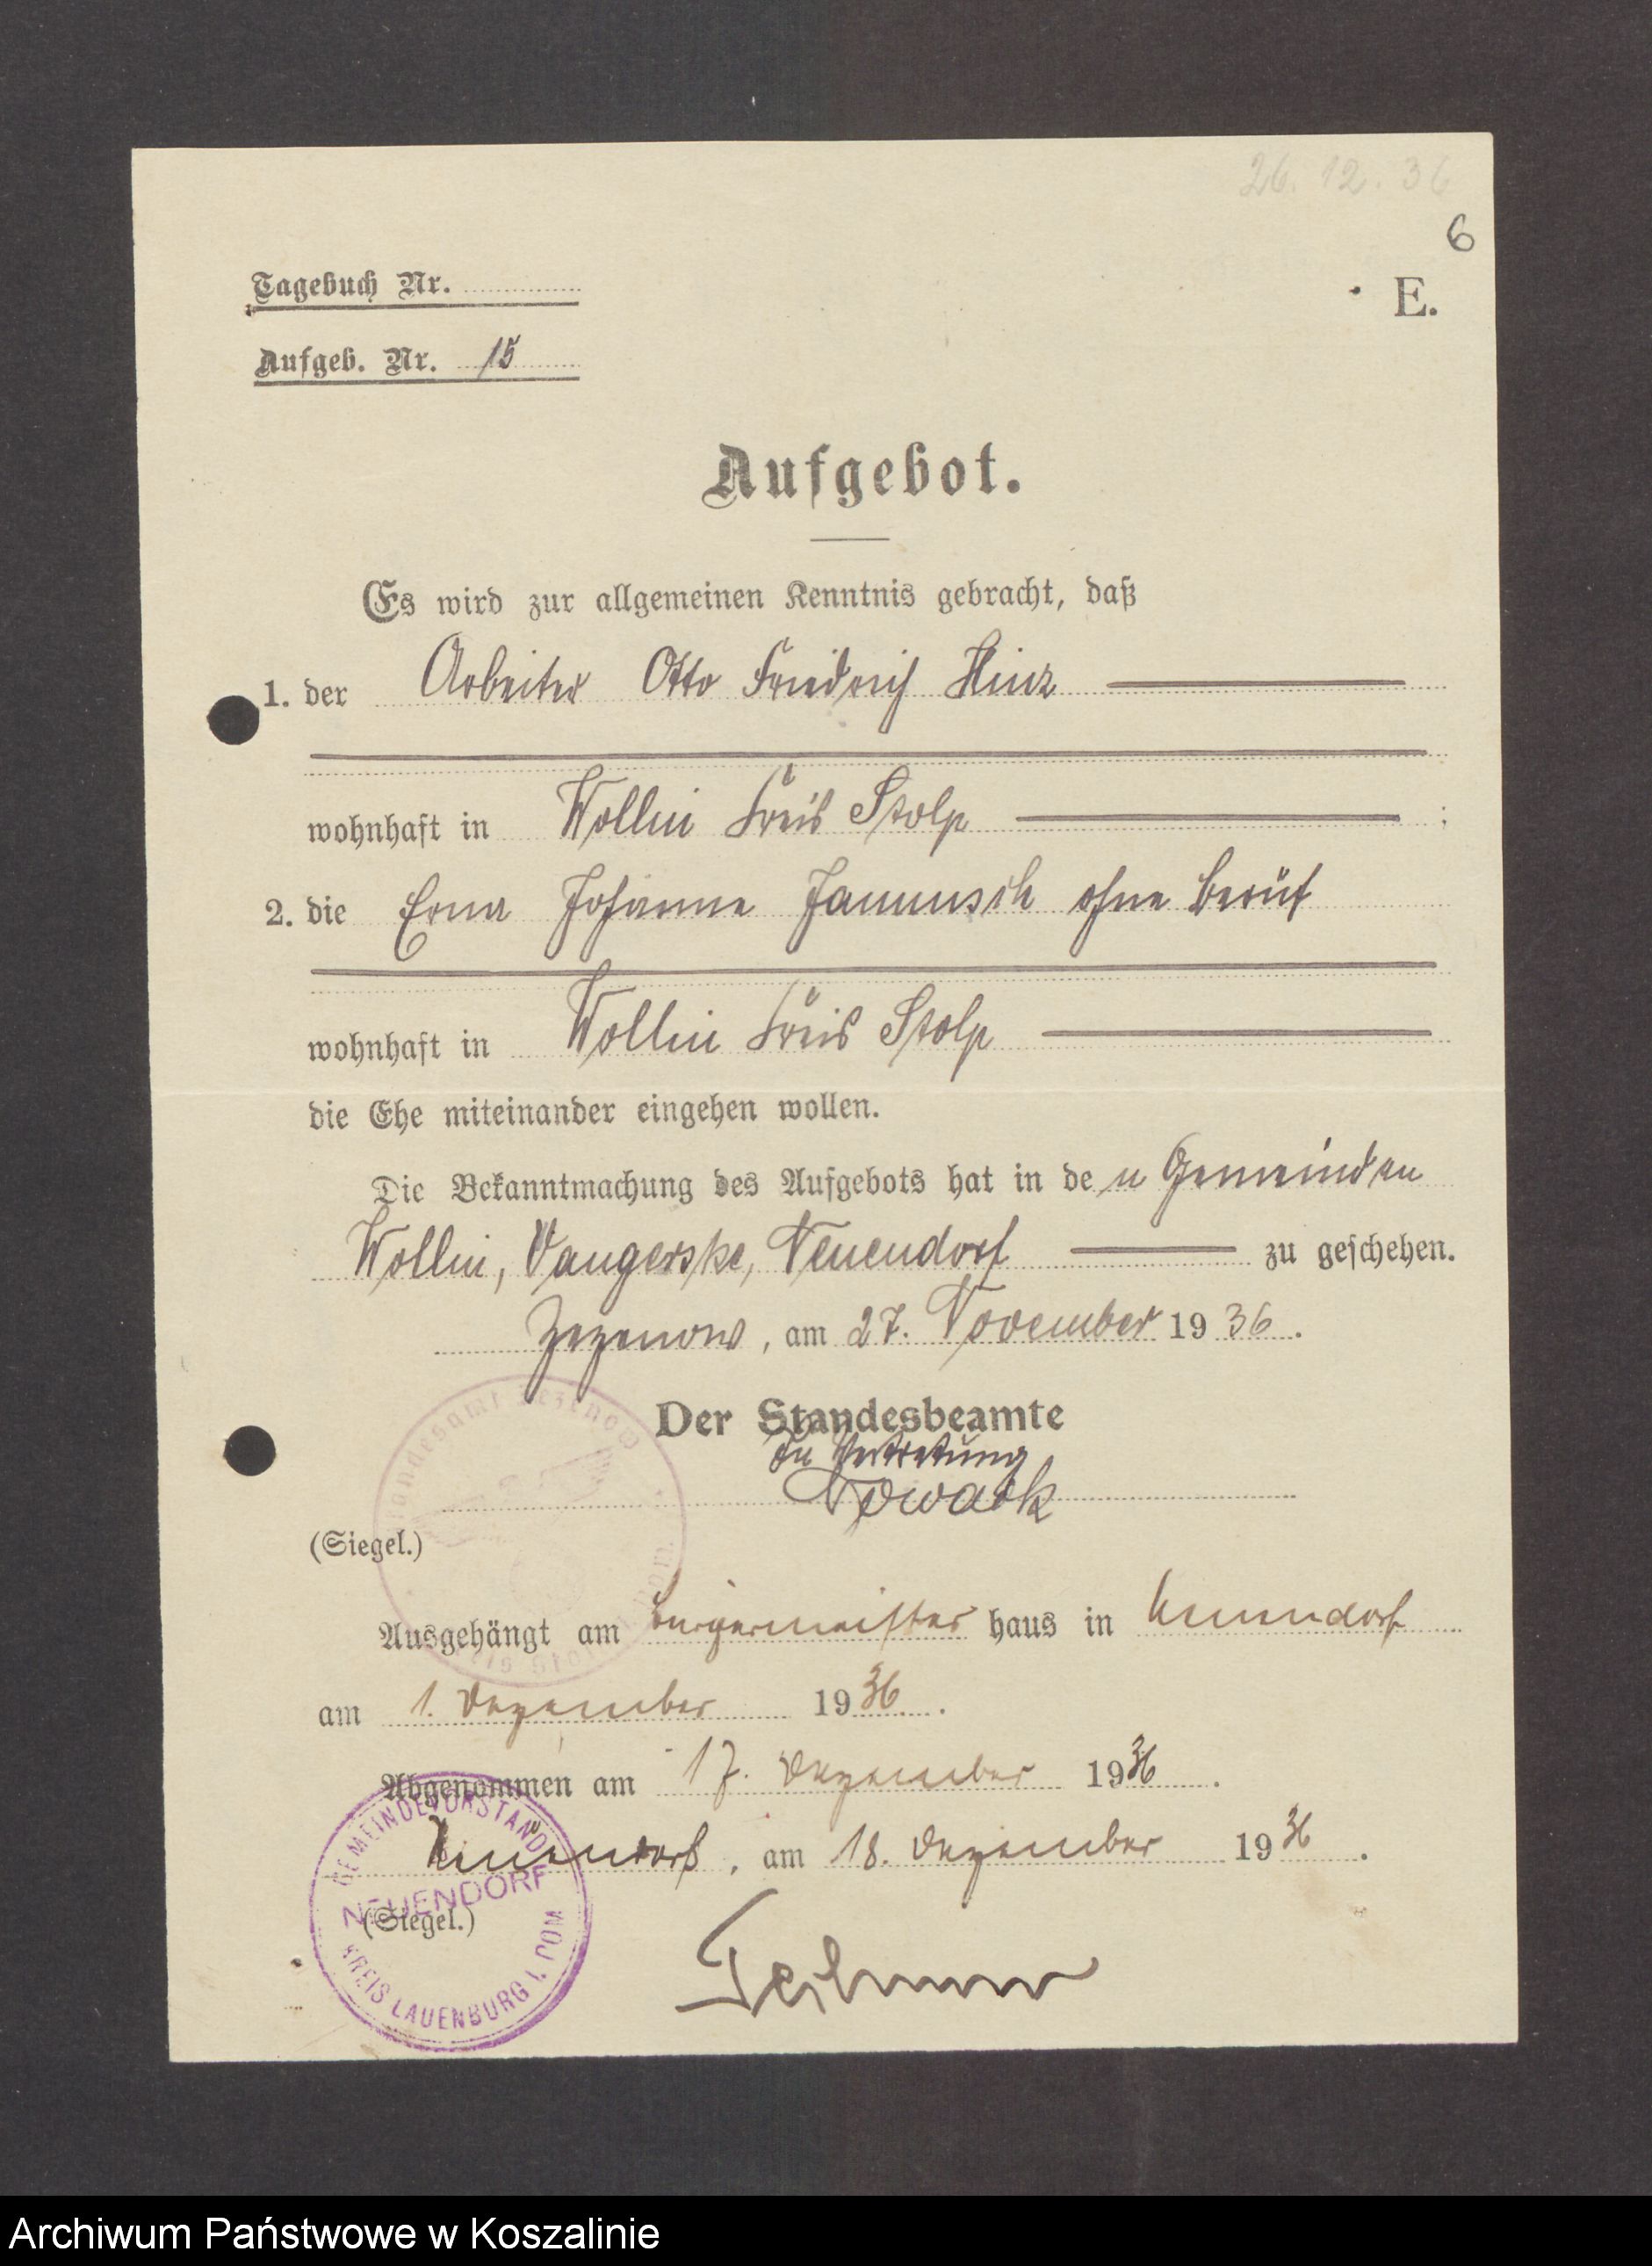 26. 12. 36
6
Tagebuch Nr.
E.
Aufgeb. Nr. 15
Aufgebot.
Es wird zur allgemeinen Kenntnis gebracht, daß
1. der Arbeiter Otto Friedrich Hinz
wohnhaft in Wollin Kreis Stolp ;
2. die Erna Johanne Jannusch ohne Beruf
wohnhaft in Wollin Kreis Stolp
die Ehe miteinander eingehen wollen.
Die Bekanntmachung des Aufgebots hat in de n Gemeinden
Wollin, Vangerske, Neuendorf zu geschehen.
Zezenow, am 27. November 1936.
Der Standesbeamte
In Vertretung
Nowack
(Siegel.)
Standesamt Zezenow
Kreis Stolp Pom
Ausgehängt am Bürgermeister haus in Neuendorf
am 1. Dezember 1936.
Abgenommen am 17. Dezember 1936.
Neuendorf, am 18. Dezember 1936.
(Siegel.)
GEMEINDEVORSTAND
NEUENDORF
KREIS LAUENBURG I. POM
Archiwum Państwowe w Koszalinie